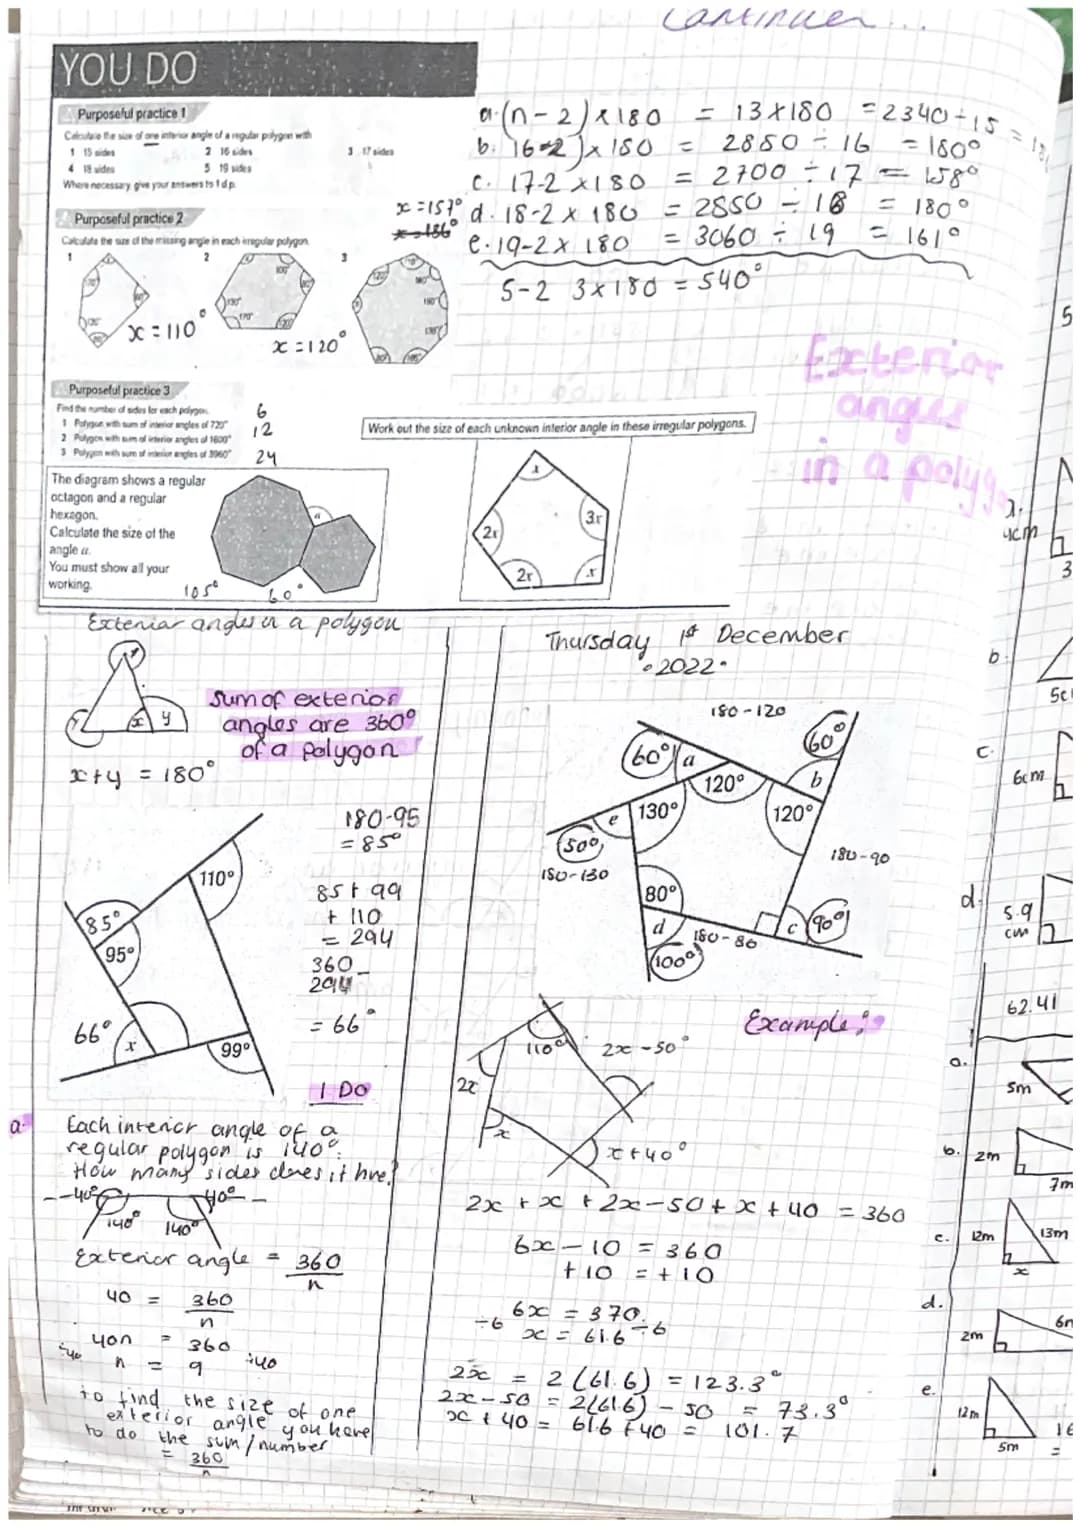 Continuer...
YOU DO
Purposeful practice 1
Calculate the size of one interior angle of a regular polygon with
1 15 sides 2 16 sides 3 17 sides
4 18 sides 5 19 sides
Where necessary, give your answers to 1 d.p.
a. (n - 2) x 180 = 13 x 180 = 2340 ÷ 15 =
b. 16-2) x 180 = 2850 ÷ 16 = 180°
c. 17-2 x 180 = 2700 ÷ 17 = 158°
d. 18-2 x 180 = 2850 ÷ 18 = 180°
e. 19-2 x 180 = 3060 ÷ 19 = 161°
5-2 3x180 = 540°
x=157°
x=136°
Purposeful practice 2
Calculate the size of the missing angle in each irregular polygon.
1 2 3
x = 110°
x = 120°
Purposeful practice 3
Find the number of sides for each polygon.
1 Polygon with sum of interior angles of 720°
2 Polygon with sum of interior angles of 1800°
3 Polygon with sum of interior angles of 3960°
6
12
24
Exterior
angles
in a polyg
Work out the size of each unknown interior angle in these irregular polygons.
x
3x
2x
2x
x
The diagram shows a regular
octagon and a regular
hexagon.
Calculate the size of the
angle a.
You must show all your
working.
a
105° 60°
Exterior angles in a polygon
x y
Sum of exterior
angles are 360°
of a polygon
x+y = 180°
180-95
= 85°
85 + 99
+ 110
= 294
360 -
294
= 66°
110°
85°
95°
66°
x
99°
I DO
a. Each interior angle of a
regular polygon is 140°.
How many sides does it hve?
40° 40°
140° 140°
Exterior angle = 360
n
40 = 360
n
÷40 40n = 360
n = 9 ÷40
to find the size of one
exterior angle you have
to do the sum/number
= 360
n
Thursday 1st December
•2022•
180-120
60° a
60°
120°
b
e 130°
120°
50°
180-130
180-90
80°
d
180-80
c 90°
100°
Example:
110°
2x-50°
2x
x
x+40°
2x + x + 2x-50 + x + 40 = 360
6x - 10 = 360
+10 = +10
6x = 370
÷6 x = 61.6 ÷6
2x = 2(61.6) = 123.3°
2x-50 = 2(61.6) - 50 = 73.3°
x + 40 = 61.6 + 40 = 101.7
5
4cm
3
b.
5c
c.
6cm
d.
5.9
cm
62.41
a.
5m
b. 2m
7m
c. 12m 13m
x
d.
2m 6m
e.
12m
5m